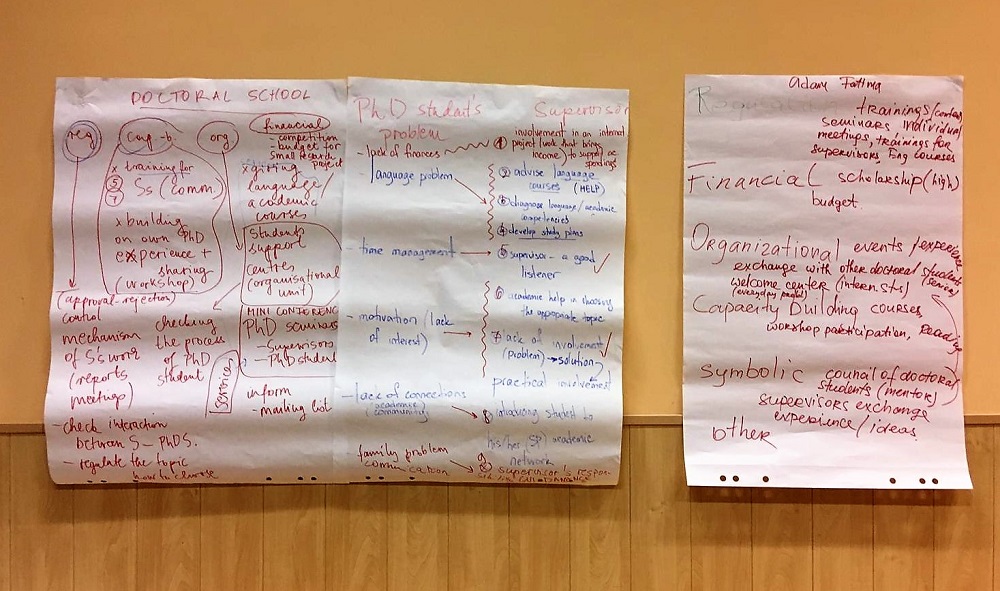 DOCTORAL SCHOOL
reg
org
financial
- competition
- budget for
small research
project
x training for
Ss (comm.
x building
on own PhD
experience +
sharing
(workshop)
x giving
language/
academic
courses
students
support
centres
(organisational
unit)
MINI CONFERENCE
PhD seminars
- Supervisors
- PhD student
service
inform
- mailing list
approval-rejection
control
mechanism
of Ss work
(reports
meetings)
checking
the process
of PhD
student
- check interaction
between S - PhDS.
- regulate the topic
how to choose
PhD student's
problem
- lack of finances
- language problem
- time management
- motivation / lack
of interest)
- lack of connections
(academic
community)
- family problem
communication
Supervisor
1 involvement in an internat
project/work that brings
income) to support
spendings
2 advise language
courses (HELP)
3 diagnose language/academic
competencies
4 develop study plans
5 supervisor - a good
listener
6 academic help in choosing
the appropriate topic
7 lack of involvement
(problem) → solution
practical involvement
8 introducing student to
his/her (SP) academic
network
9 supervisor is respon-
Adam Fatima
trainings/
seminars individual
meetings, trainings for
supervisors Eng courses
Financial scholarship (high)
budget
Organizational events / experience
exchange with other doctoral students
welcome center (internsts) (service)
Capacity building courses
workshop participation, Reading
symbolic council of doctoral
students (mentors)
supervisors exchange
experience / ideas
other